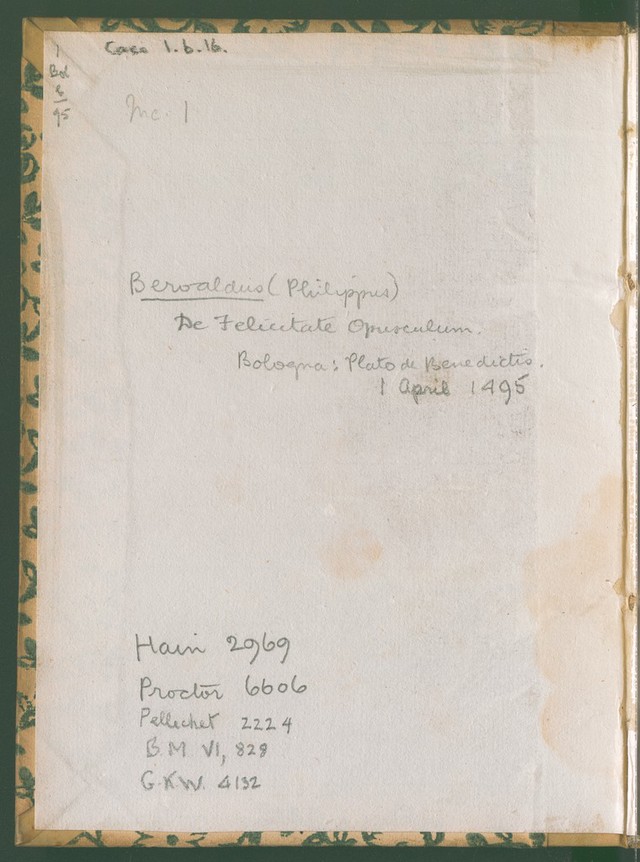 Case 1.b.16.
1
Bol
6
95
Inc. 1
Beroaldus (Philippus)
De Felicitate Opusculum.
Bologna: Plato de Benedictis.
1 April 1495
Hain 2969
Proctor 6606
Pellechet 2224
B.M VI, 828
G.K.W. 4132